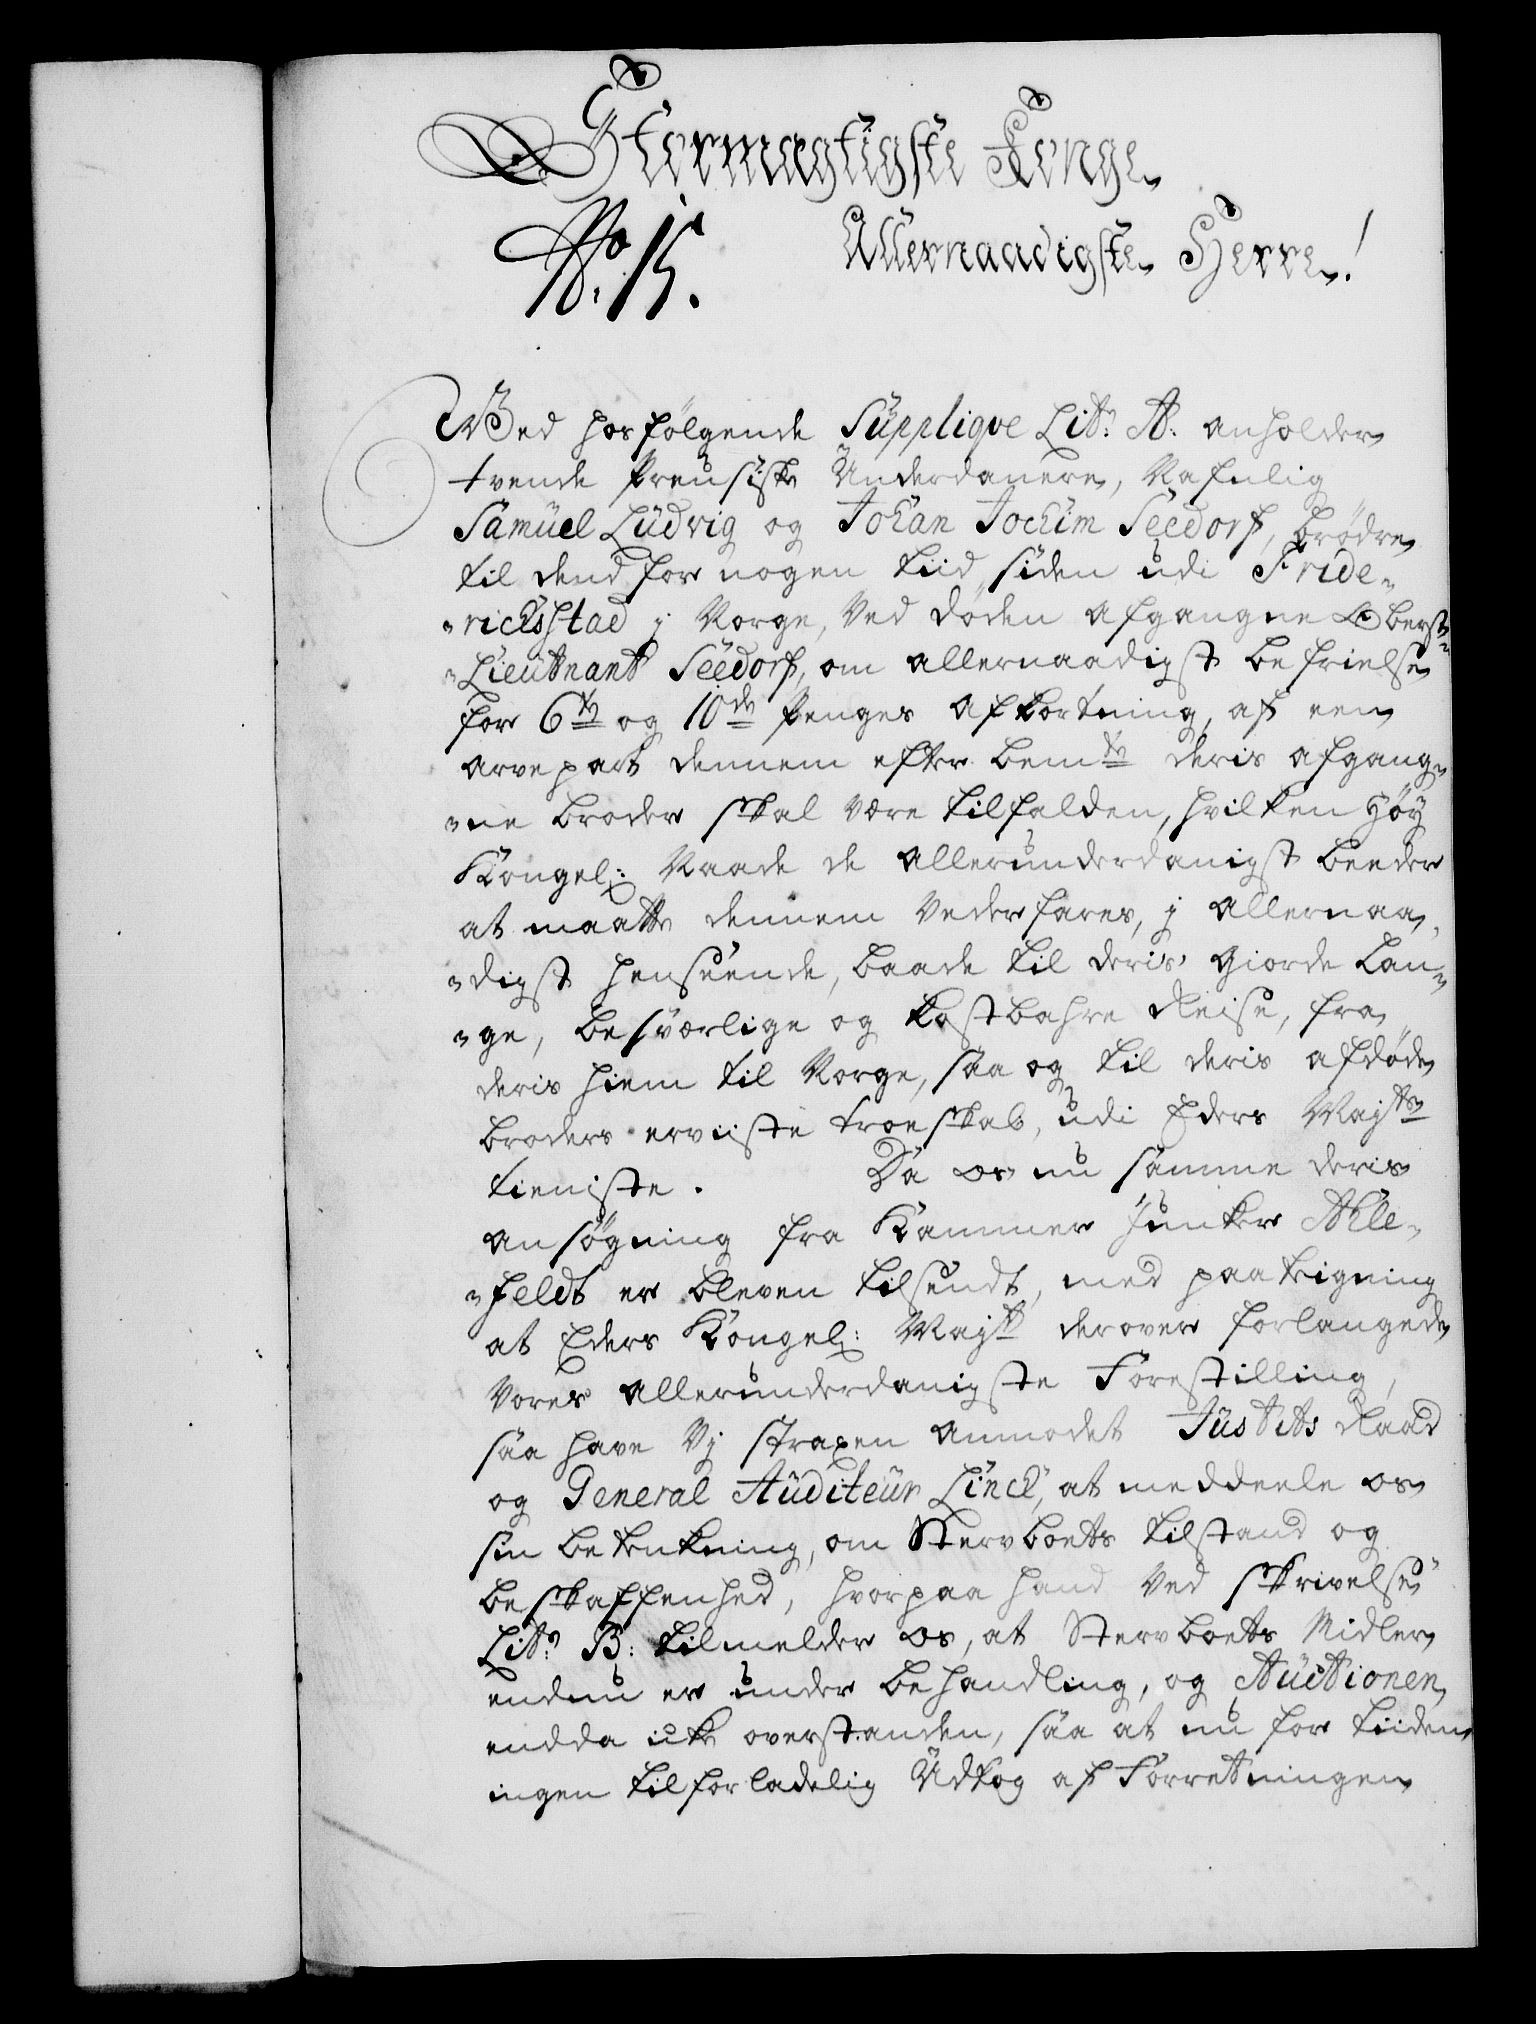 Stormægtigste Konge
Allernaadigste Herre!
No. 15.
Ved hosfølgende Supplique Litr: A. anholder
tvende Preusiske Underdanere, Nafnlig
Samuel Ludvig og Johan Jochim Seedorf, brødre
til dend for nogen tiid siden udi Fride-
-richsstad j Norge, ved døden afgangne Oberst-
-Lieutnant Seedorf, om allernaadigst befrielse
for 6te og 10de Penges afkortning, af een
arvepart dennem efter bemte deris afgang-
-ne broder skal være tilfalden, hvilken Høy
Kongel: Naade de allerunderdanigst beeder
at maatte dennem vederfares, j allernaa-
-digst henseende, baade til deris giorde lan-
-ge, besværlige og kostbahre Reise, fra
deris hiem til Norge, saa og til deris afdøde
broders erviiste troeskab, udi Eders Mayts
tieniste. Da os nu samme deris
ansøgning fra Kammer Junker Ahle-
-feldt er bleven tilsendt, med paateigning
at Eders Kongel: Mayt derover forlangede
vores allerunderdanigste Forestilling,
saa have Vj straxen anmodet Justits Raad
og General Auditeur Linck, at meddeele os
sin betenkning, om Stervboets tilstand og
beskaffenhed, hvorpaa hand ved skrivelse
Litr: B: tilmelder os, at Stervboets Midler
endnu er under behandling, og Auctionen
endda icke overstanden, saa at nu for tiiden
ingen tilforladelig Udtog af Forretningen